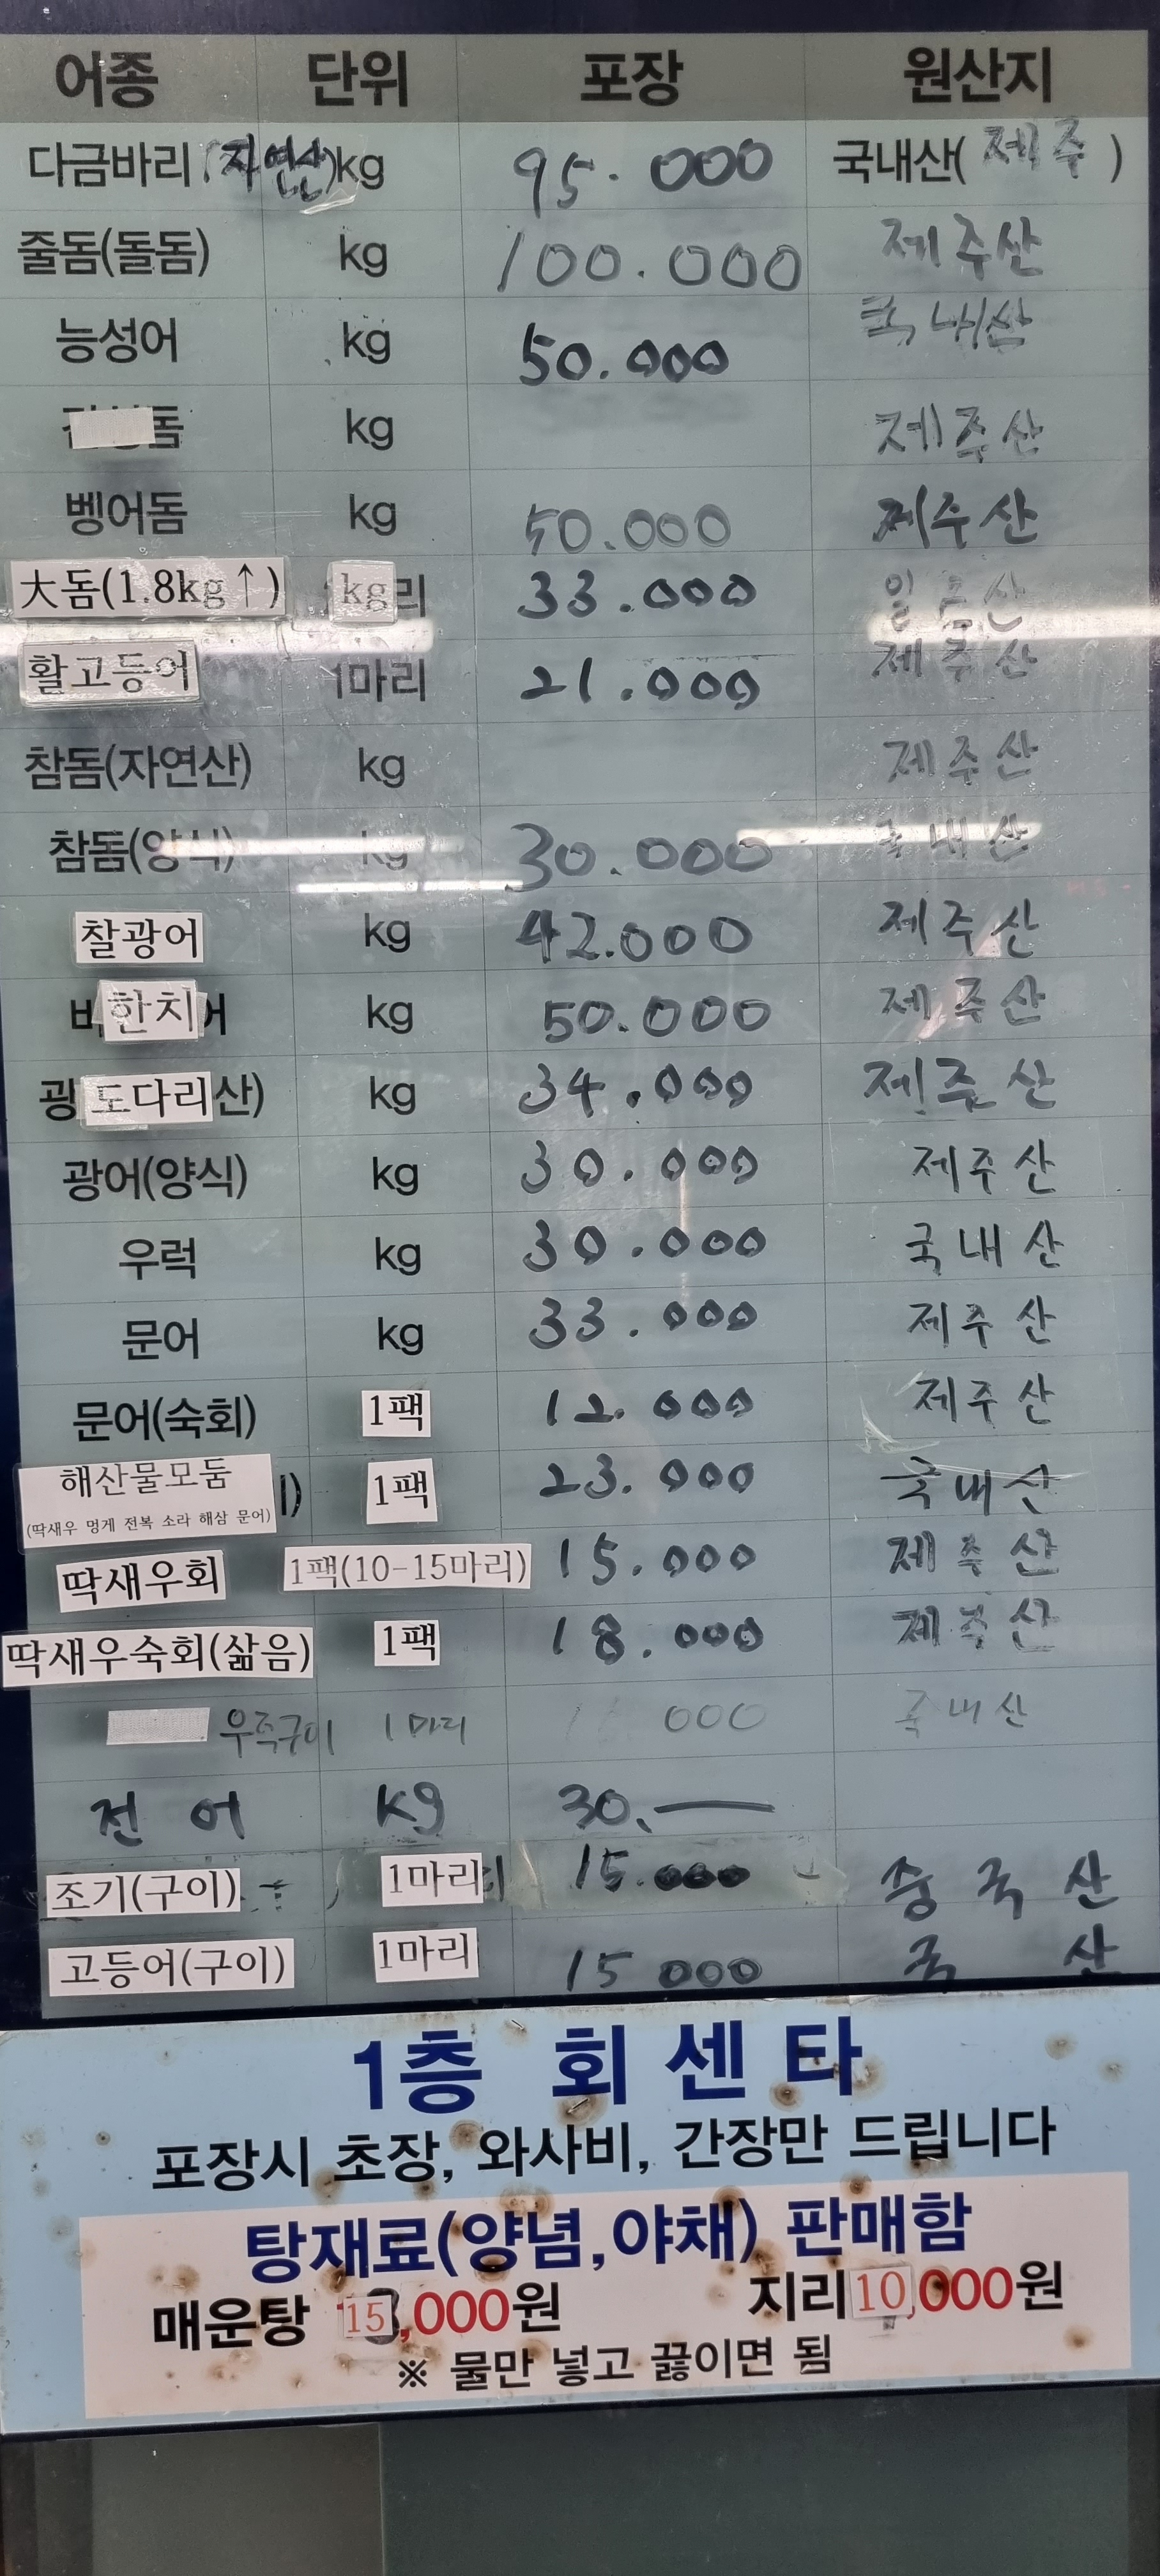 어종 단위 포장 원산지
다금바리 (자연산) kg 95.000 국내산( 제주 )
줄돔(돌돔) kg 100.000 제주산
능성어 kg 50.000 국내산
돔 kg 제주산
벵어돔 kg 50.000 제주산
大돔(1.8kg↑) kg리 33.000 일본산
활고등어 1마리 21.000 제주산
참돔(자연산) kg 제주산
참돔(양식) kg 30.000 국내산
찰광어 kg 42.000 제주산
한치 kg 50.000 제주산
광도다리산) kg 34.000 제주산
광어(양식) kg 30.000 제주산
우럭 kg 30.000 국내산
문어 kg 33.000 제주산
문어(숙회) 1팩 12.000 제주산
해산물모둠 1팩 23.000 국내산
(딱새우 멍게 전복 소라 해삼 문어)
딱새우회 1팩(10-15마리) 15.000 제주산
딱새우숙회(삶음) 1팩 18.000 제주산
1마리 000 국내산
전어 Kg 30.—
조기(구이) 1마리 15.000 중국산
고등어(구이) 1마리 15 000 국 산
1층 회센타
포장시 초장, 와사비, 간장만 드립니다
탕재료(양념,야채) 판매함
매운탕 15,000원 지리 10,000원
※ 물만 넣고 끓이면 됨